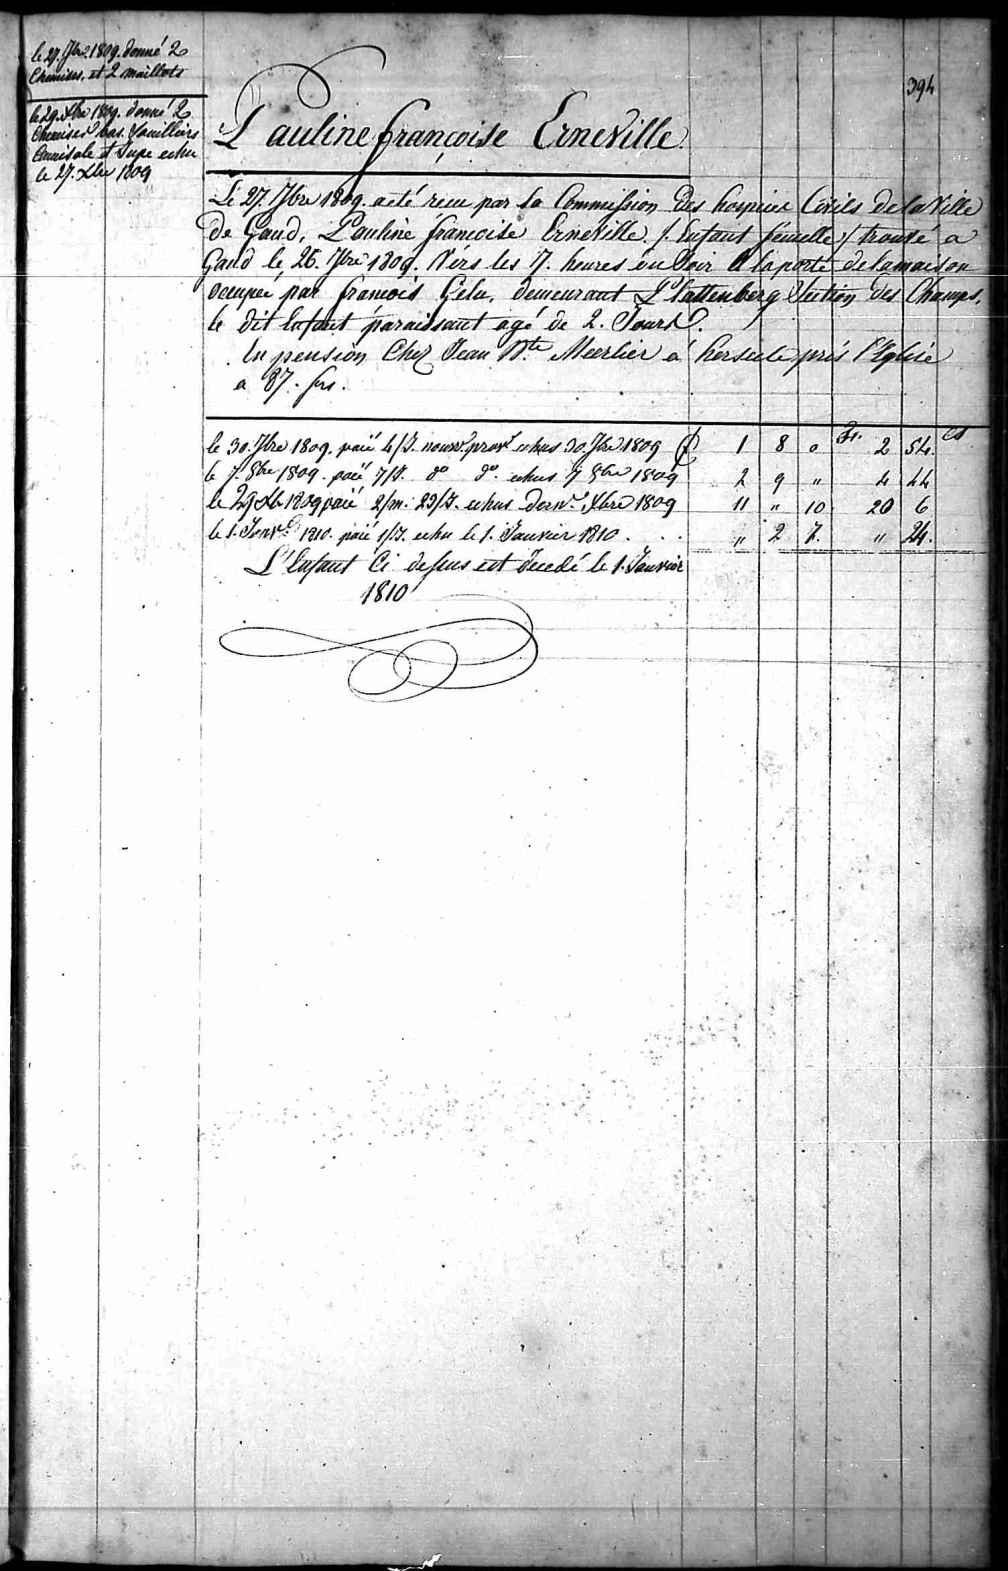 394
le 27. 7bre 1809. donné 2
Chemises, et 2 maillots
le 29. Xbre 1809. donné 2
Chemises bas
Camisole et Jupe echu
le 27. Xbre 1809
Pauline françoise Erneville
Le 27. 7bre 1809. a eté recu par la Commission des hospices Civils de la Ville
de Gand, Pauline francoise Erneville /: Enfant femelle :/ trouvé a
Gand le 26. 7bre 1809. Vers les 7. heures du Soir a la porte de la maison
occupée par francois Gelu, demeurant Section des Champs,
le dit Enfant paraissant agé de 2. Jours.
En pension Chez Jean Bte. Meerlier á près l'Eglise
a 87. frs.
Fr. Cs
le 30. 7bre 1809. paié 4/J. echus 30. 7bre 1809 £ 1 8 0 2 54.
le 7. 8bre 1809. paié 7/J. do do. echus 7 8bre 1809 2 9 " 4 44
le 29 Xbre 1809 paié 2/m. 23/J. echus Xbre 1809 11 " 10 20 6
le 1. Janvr. 1810. paié 1/J. echu le 1. Janvier 1810 . . . " 2 7. " 24.
L'Enfant Ci dessus est decedé le 1. Janvier
1810